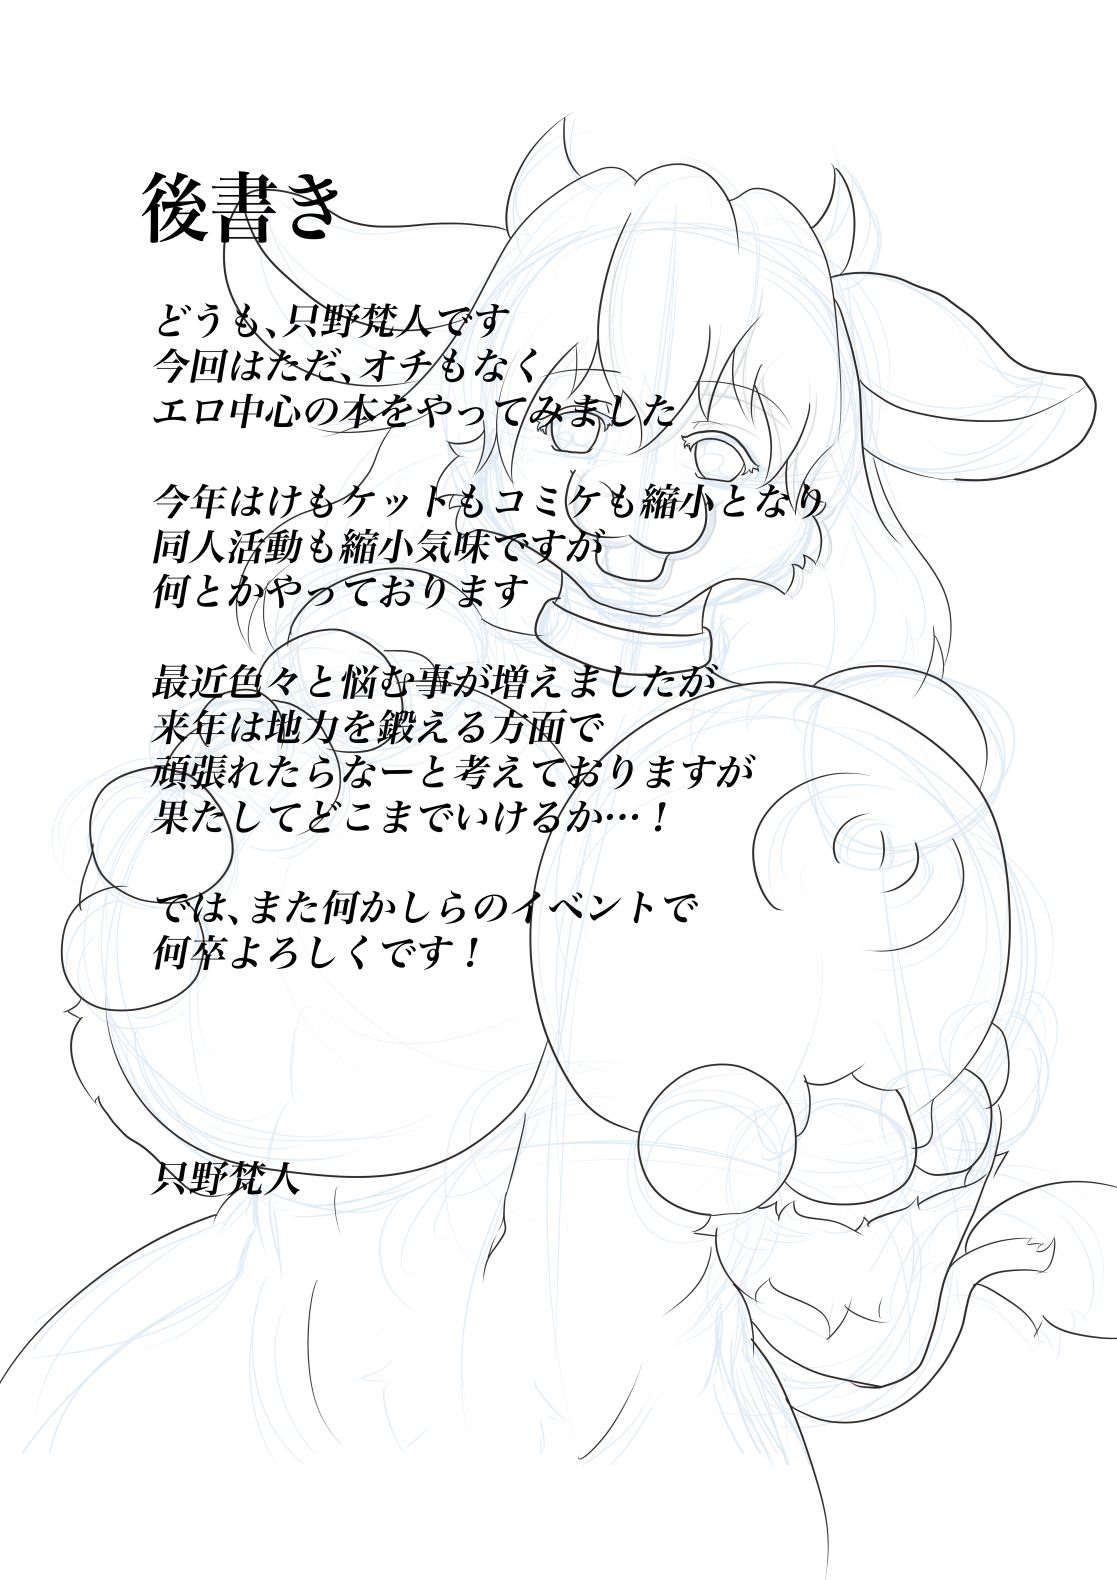 後書き
どうも、只野梵人です
今回はただ、オチもなく
エロ中心の本をやってみました
今年はけもケットもコミケも縮小となり
同人活動も縮小気味ですが
何とかやっております
最近色々と悩む事が増えましたが
来年は地力を鍛える方面で
頑張れたらなーと考えておりますが
果たしてどこまでいけるか…！
では、また何かしらのイベントで
何卒よろしくです！
只野梵人